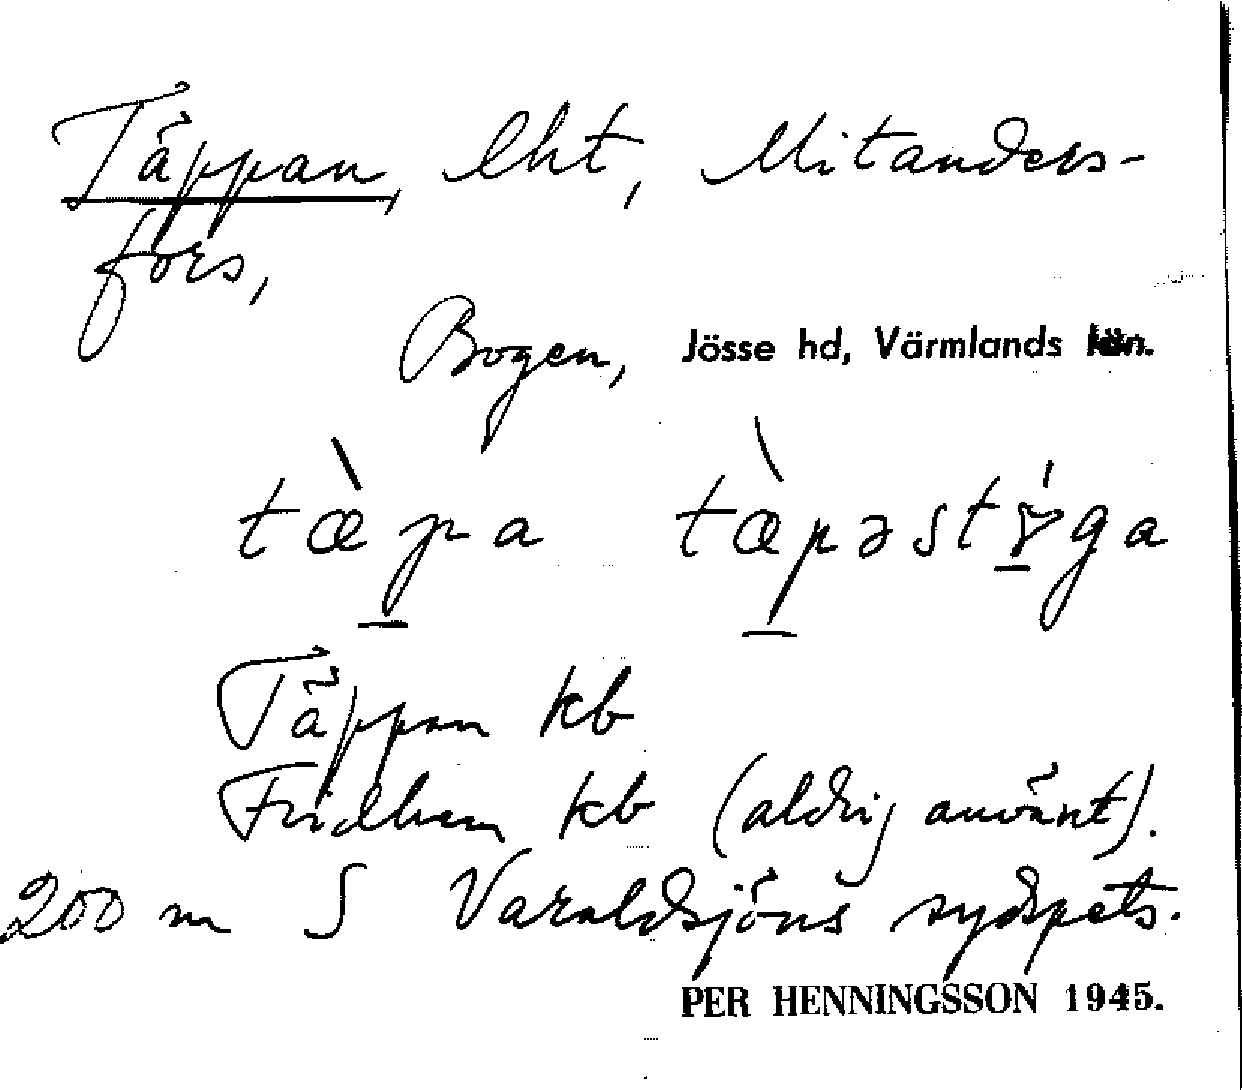 Täppan, lht, Mitanders-
fors,
Bogen, Jösse hd, Värmlands län.
tæ̀pa tæ̀pəstýga
Täppan kb
Fridhem kb (aldrig använt).
200 m S Varaldsjöns sydspets.
PER HENNINGSSON 1945.